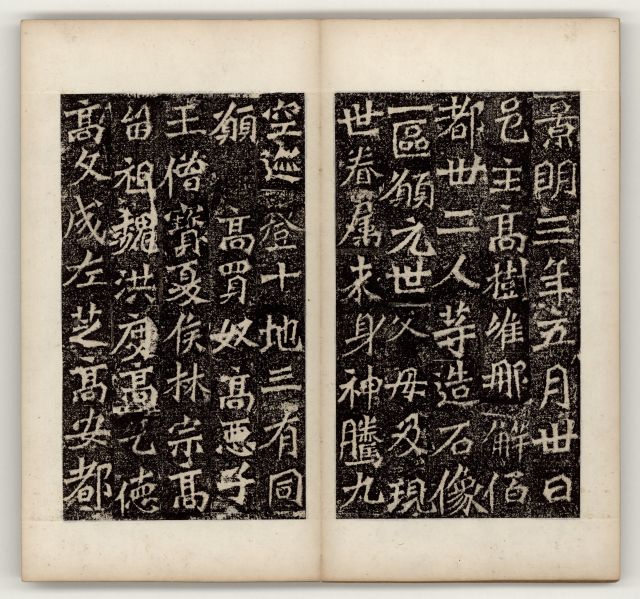 景明三年五月卅日
邑主高樹維那解佰
都卅二人等造石像
一區願元世父母及現
世眷屬来身神騰九
空迹登十地三有同
願 高買奴高惡子
王僧寶夏侯林宗高
留祖魏洪度高乞德
高文成左芝高安都